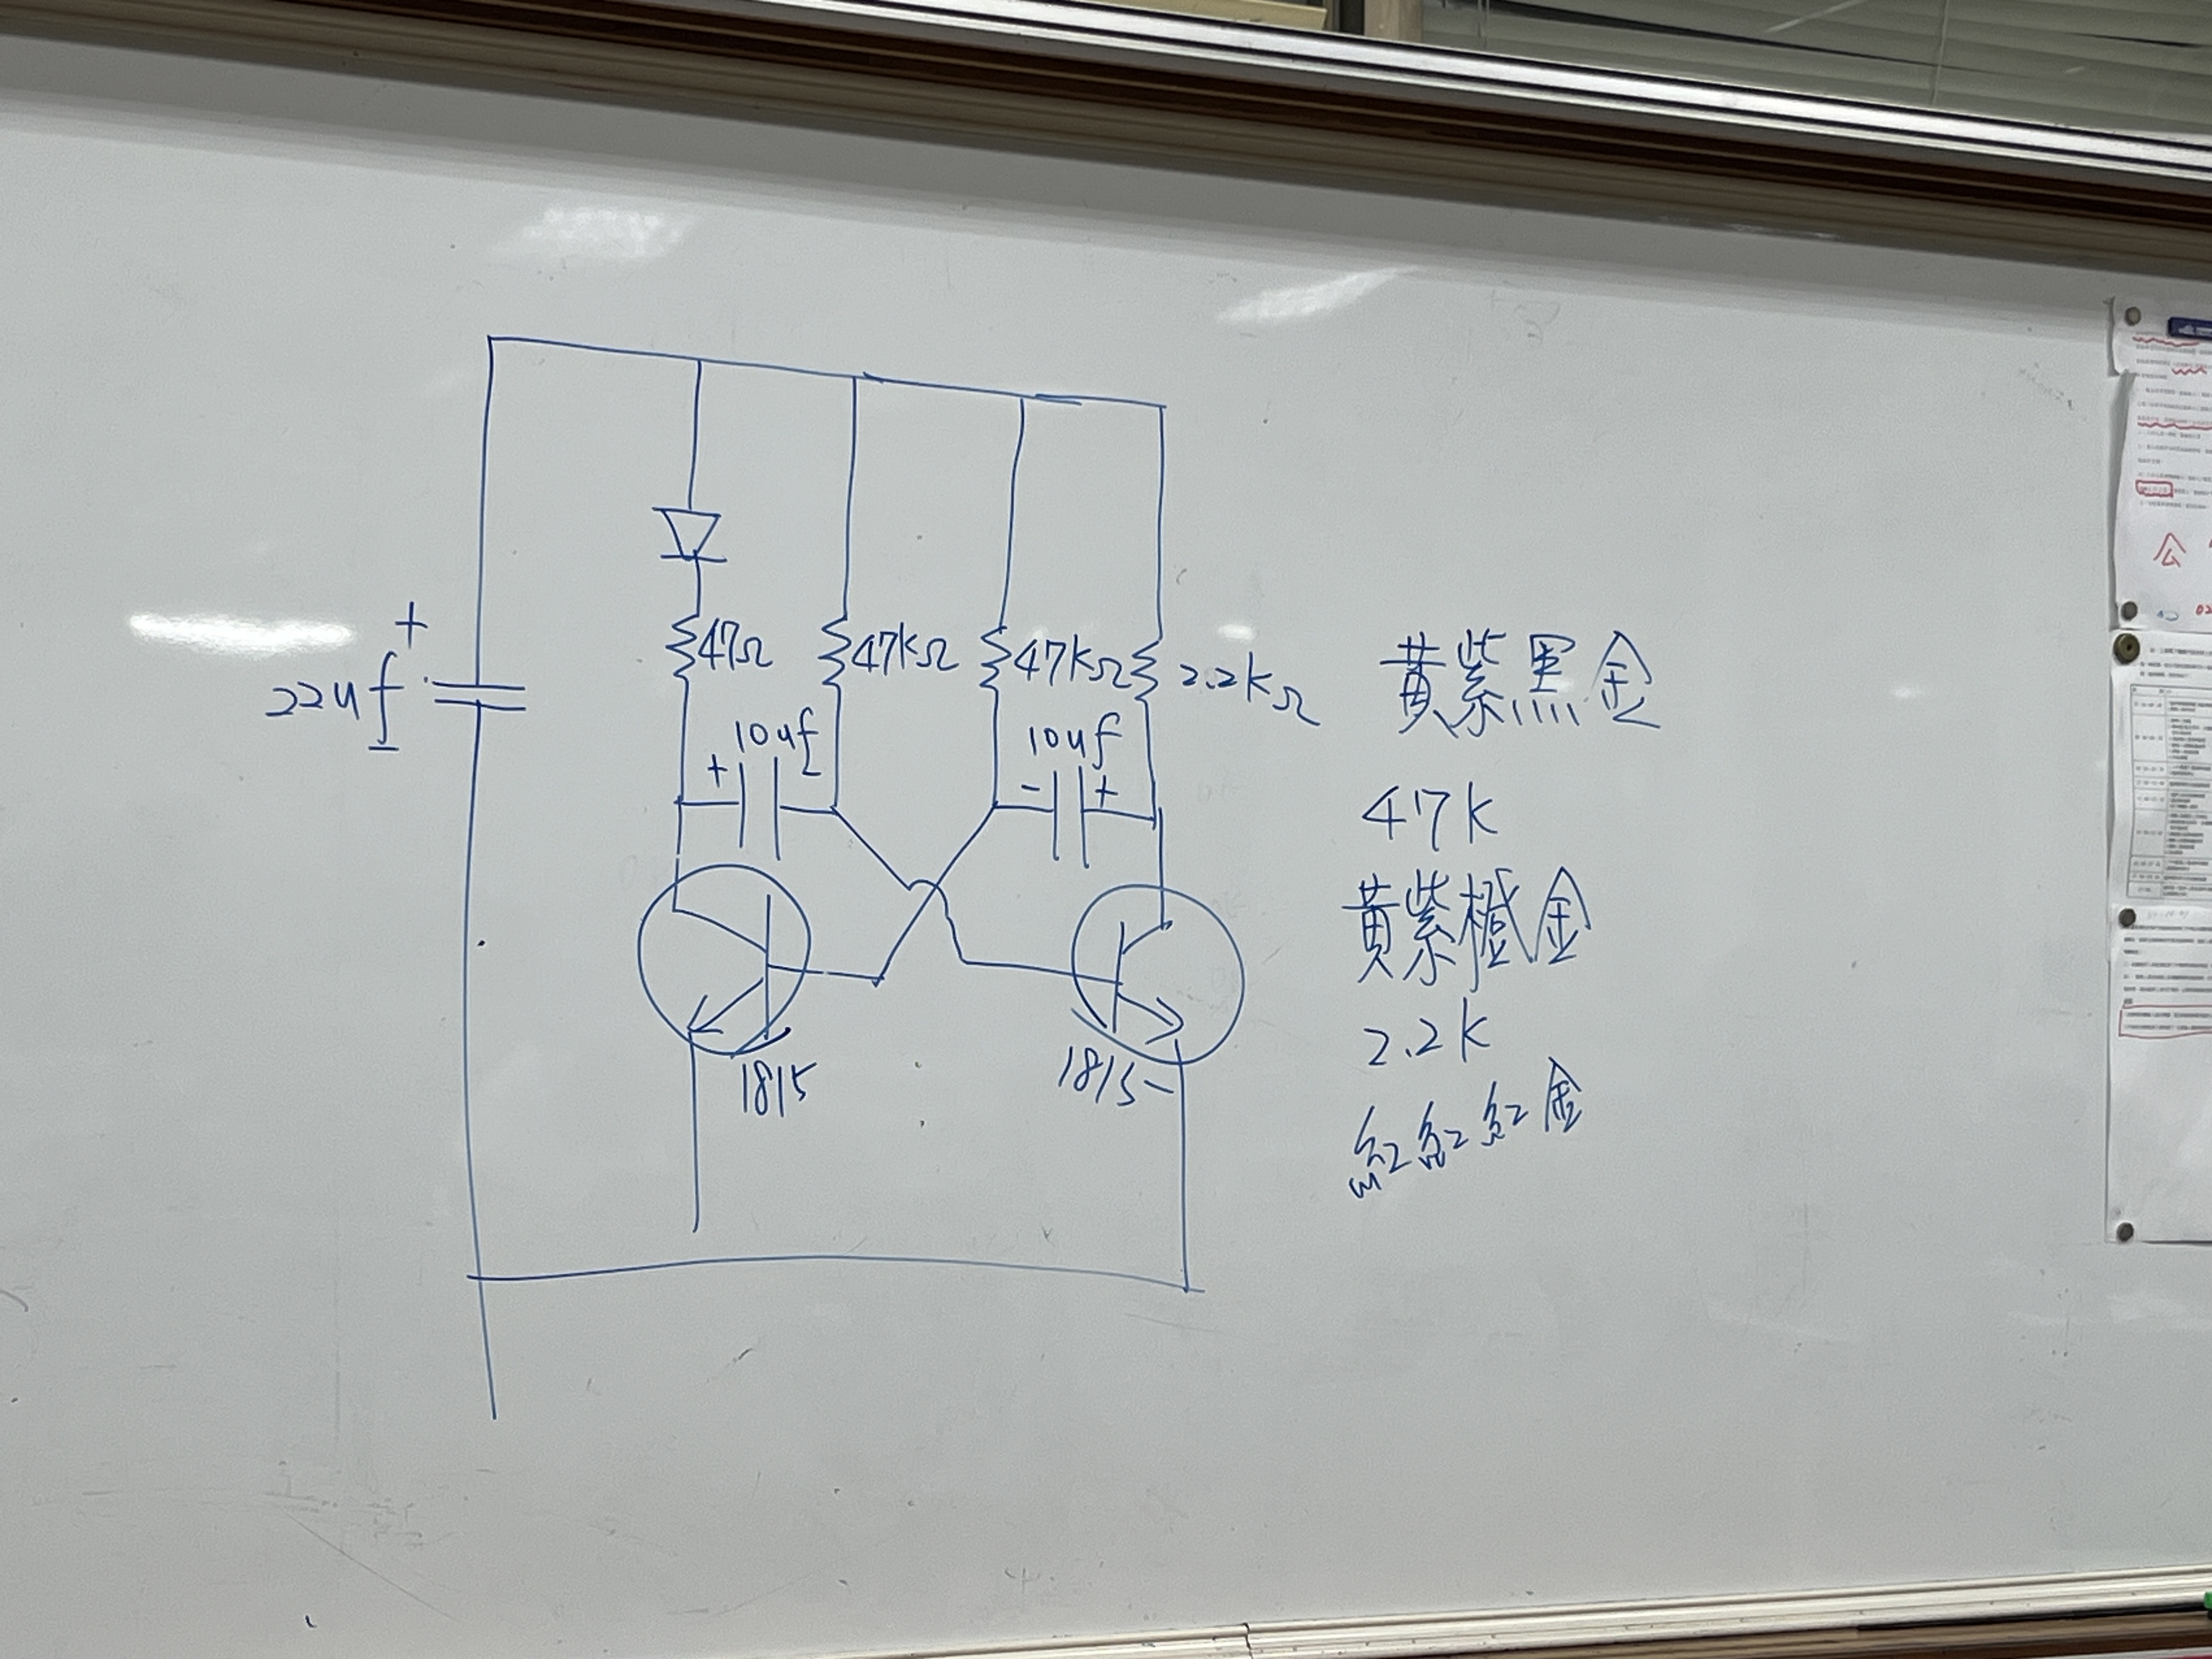 +
22uf
47Ω
47kΩ
47kΩ
2.2kΩ
+
10uf
10uf
-
+
1815
1815
黃紫黑金
47K
黃紫橙金
2.2K
紅紅紅金
公